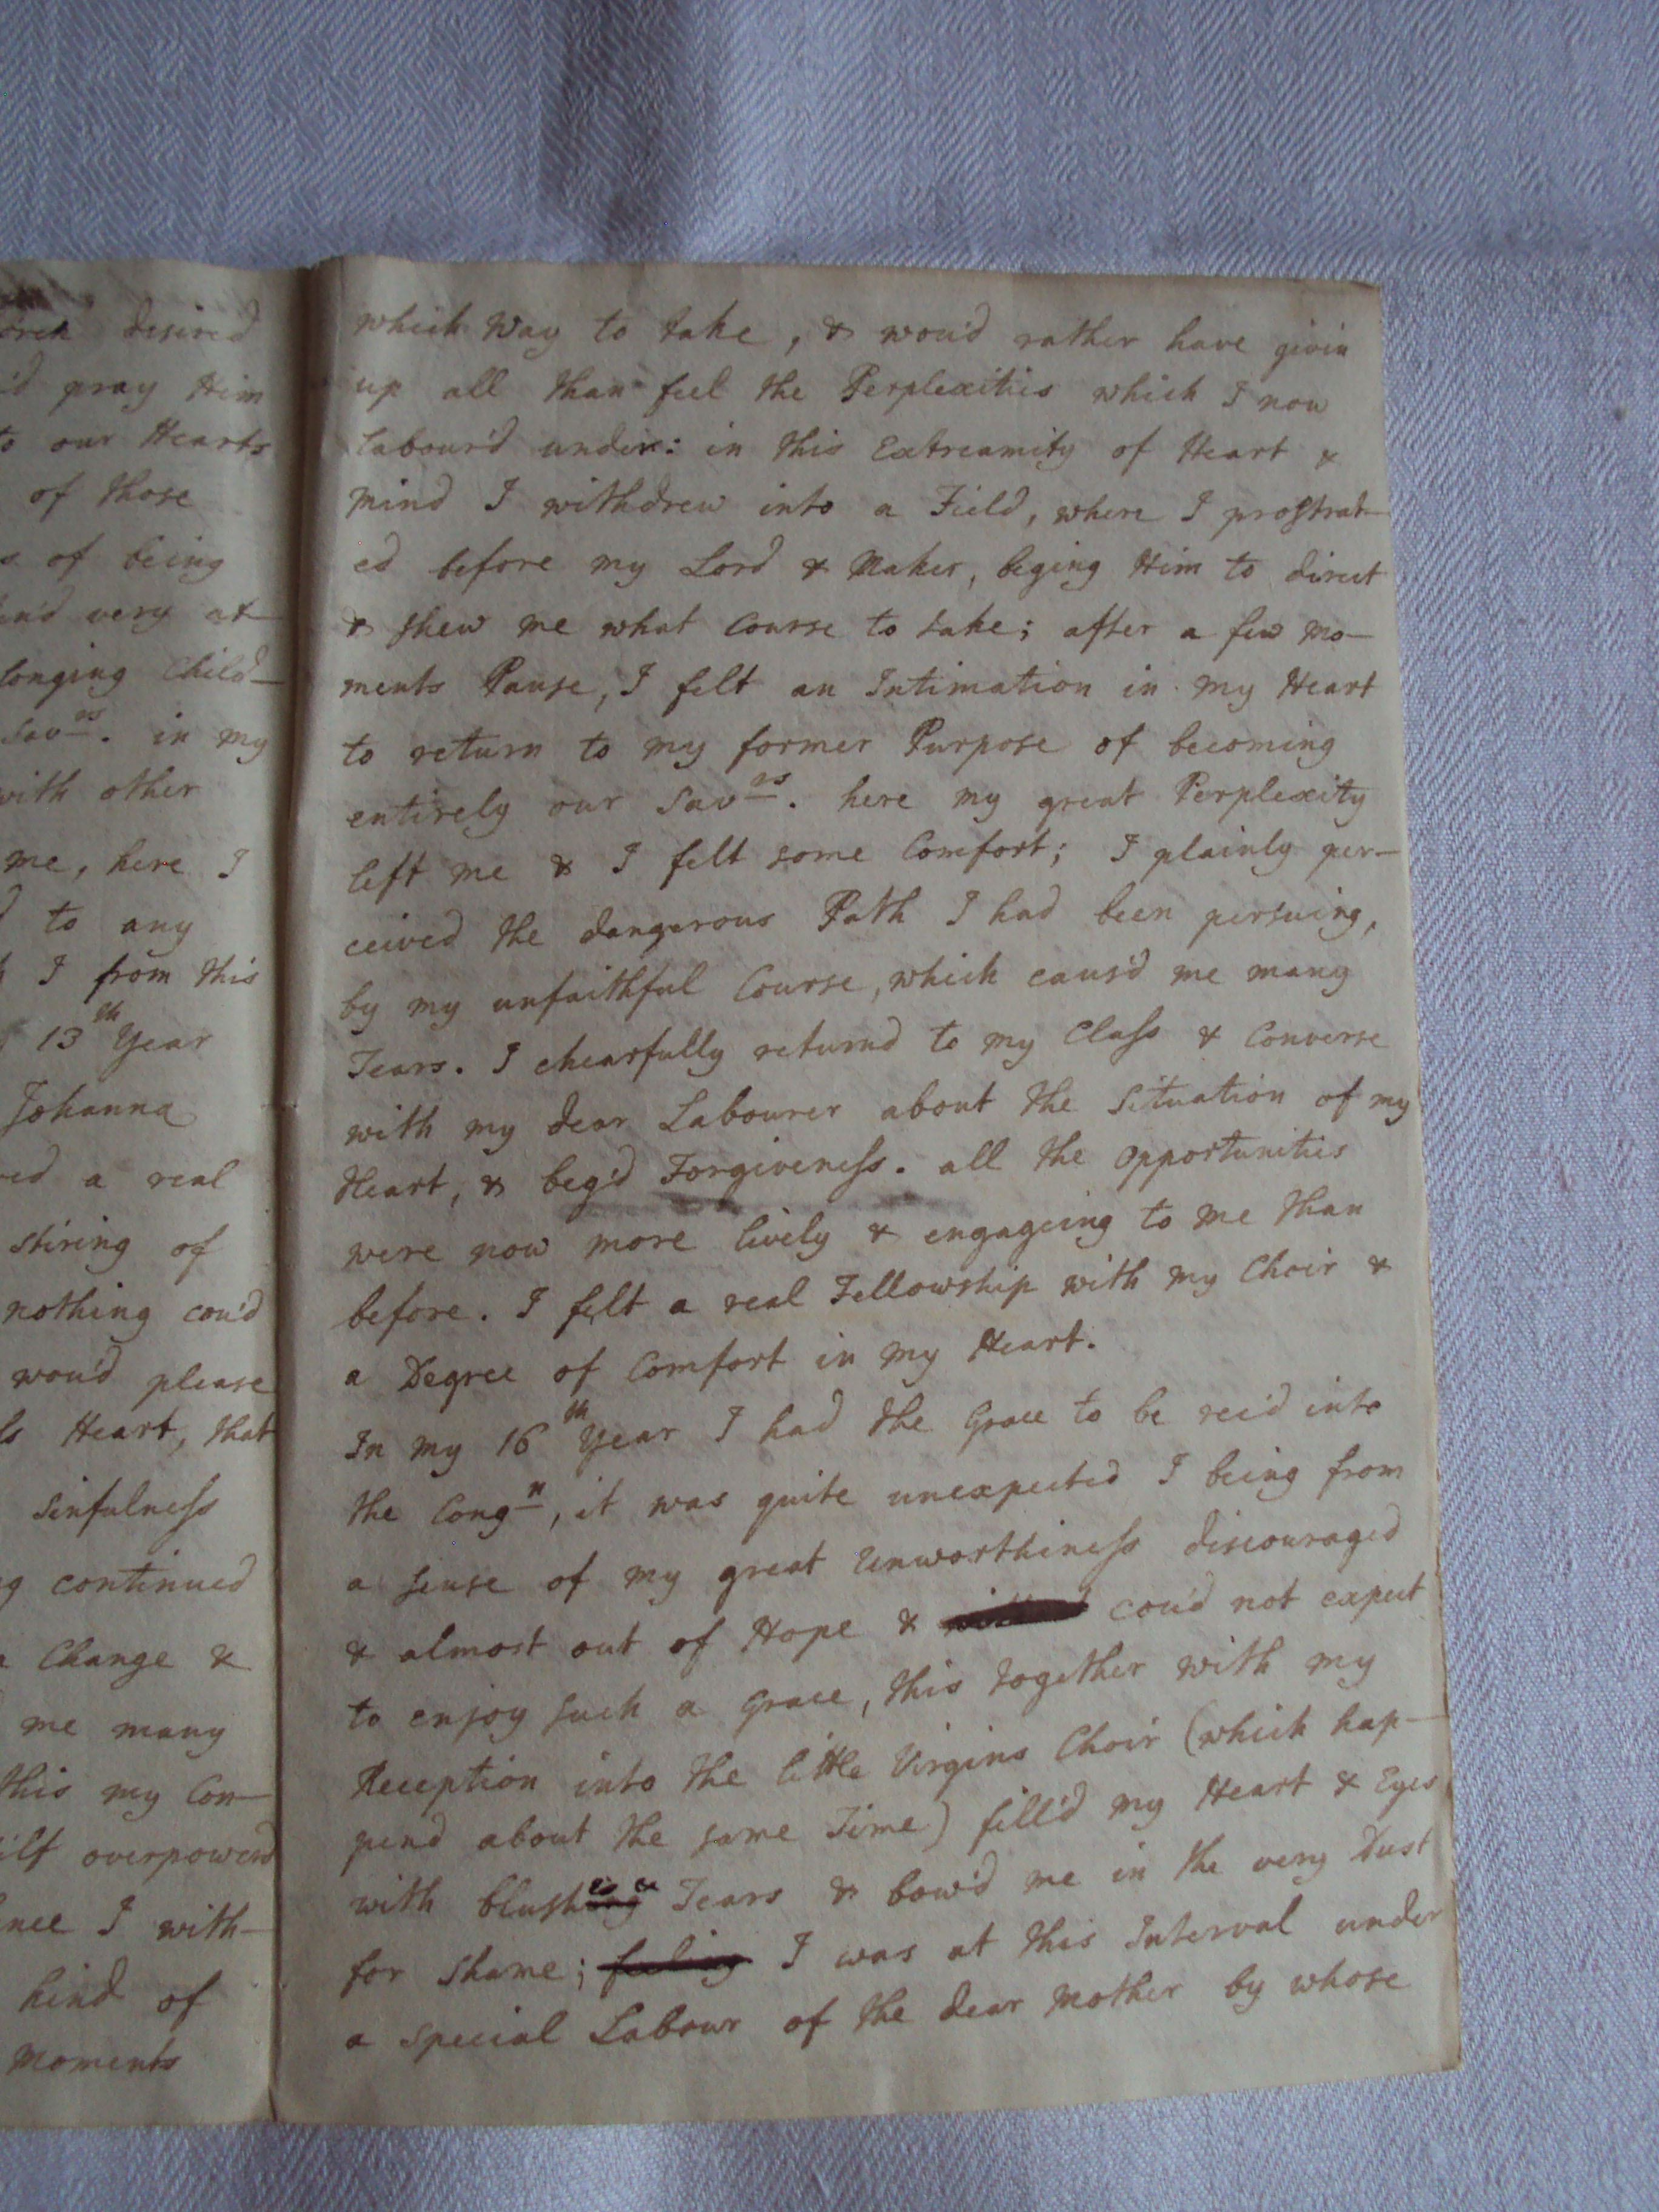 desired
'd pray Him
to our Hearts
of those
s of being
and very at-
longing Child-
Savrs. in my
with other
me, here I
d to any
h I from this
13th Year
Johanna
red a real
stiring of
nothing cou'd
wou'd please
ls Heart, that
sinfulness
g continued
a Change &
me many
this my Con-
self overpowerd
ince I with-
kind of
moments
which way to take, & wou'd rather have given
up all than feel the Perplexities which I now
labour'd under: in this Extreamity of Heart &
mind I withdrew into a Field, where I prostrat-
ed before my Lord & Maker, beging Him to direct
& shew me what Course to take; after a few mo-
ments Pause, I felt an Intimation in my Heart
to return to my former Purpose of becoming
entirely our Savrs. here my great Perplexity
left me & I felt some Comfort; I plainly per-
ceived the dangerous Path I had been persuing,
by my unfaithful Course, which caus'd me many
Tears. I chearfully returnd to my Class & Converse
with my dear Labourer about the Situation of my
Heart, & beg'd Forgiveness. all the Opportunities
were now more lively & engageing to me than
before. I felt a real Fellowship with my Choir &
a Degree of Comfort in my Heart.
In my 16th Year I had the Grace to be rec'd into
the Congn, it was quite unexpected I being from
a sense of my great Unworthiness discouraged
& almost out of Hope & cou'd not expect
to enjoy such a Grace, this together with my
Reception into the little Virgins Choir (which hap-
pend about the same Time) fill'd my Heart & Eyes
with blushing es & Tears & bow'd me in the very Dust
for Shame; feeling I was at this Interval under
a special Labour of the dear Mother by whose